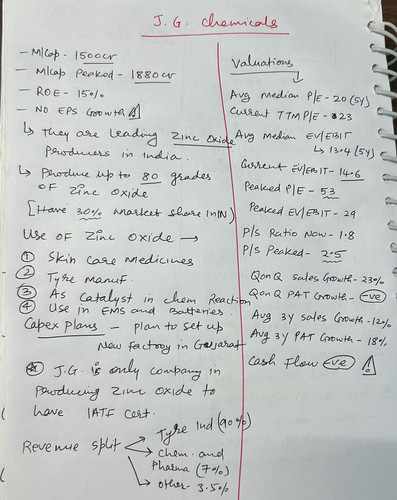 J. G. Chemicals
- M/Cap - 1500cr
- M/cap Peaked - 1880cr
- ROE - 15%
- NO EPS Growth
↳ They are leading Zinc Oxide
Producers in India.
↳ Produce up to 80 grades
of Zinc Oxide
[Have 30% Market share in IN)
Use of Zinc oxide →
① Skin Care Medicines
② Tyre Manuf.
③ As catalyst in Chem Reaction
④ Use in EMS and Batteries.
Capex Plans - plan to set up
New factory in Gujarat
J.G. is only company in
producing zinc oxide to
have IATF Cert.
Revenue split
Tyre Ind (90%)
Chem. and
Pharma (7%)
other - 3.5%
Valuations
Avg Median P/E - 20 (5Y)
Current TTM P/E - 23
Avg Median EV/EBIT
↳ 13.4 (5Y)
Current EV/EBIT - 14.6
Peaked P/E - 53
Peaked EV/EBIT - 29
P/S Ratio Now - 1.8
P/S Peaked - 2.5
QonQ Sales Growth - 23%
QonQ PAT Growth - -ve
Avg 3Y Sales Growth - 12%
Avg 3Y PAT Growth - 18%
Cash Flow -ve